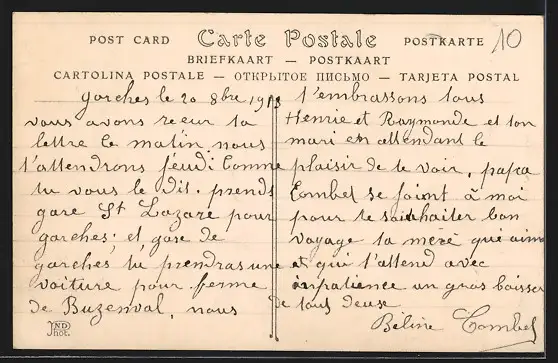 POST CARD Carte Postale POSTKARTE 10
BRIEFKAART — POSTKAART
CARTOLINA POSTALE — ОТКРЫТОЕ ПИСЬМО — TARJETA POSTAL
garches le 20 8bre 1913
vous avons recur ta
lettre ce matin nous
t'attendrons jeudi comme
tu vous le dis. prends
gare St Lazare pour
garches; et gare de
garches tu prendras une
voiture pour ferme
de Buzenval, nous
t'embrassons tous
Henrie et Raymonde et ton
mari en attendant le
plaisir de te voir, papa
Combet se joint à moi
pour te souhaiter bon
voyage ta mère qui aime
et qui t'attend avec
inpatience un gros baisser
de tous deuse
Beline Combet
ND
Phot.